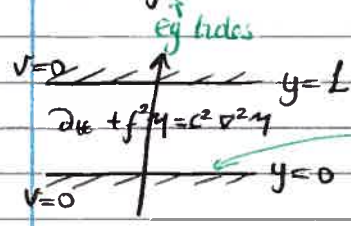 eg tides
v=0
y=L
∂tt + f²η = c² ∇² η
y=0
v=0